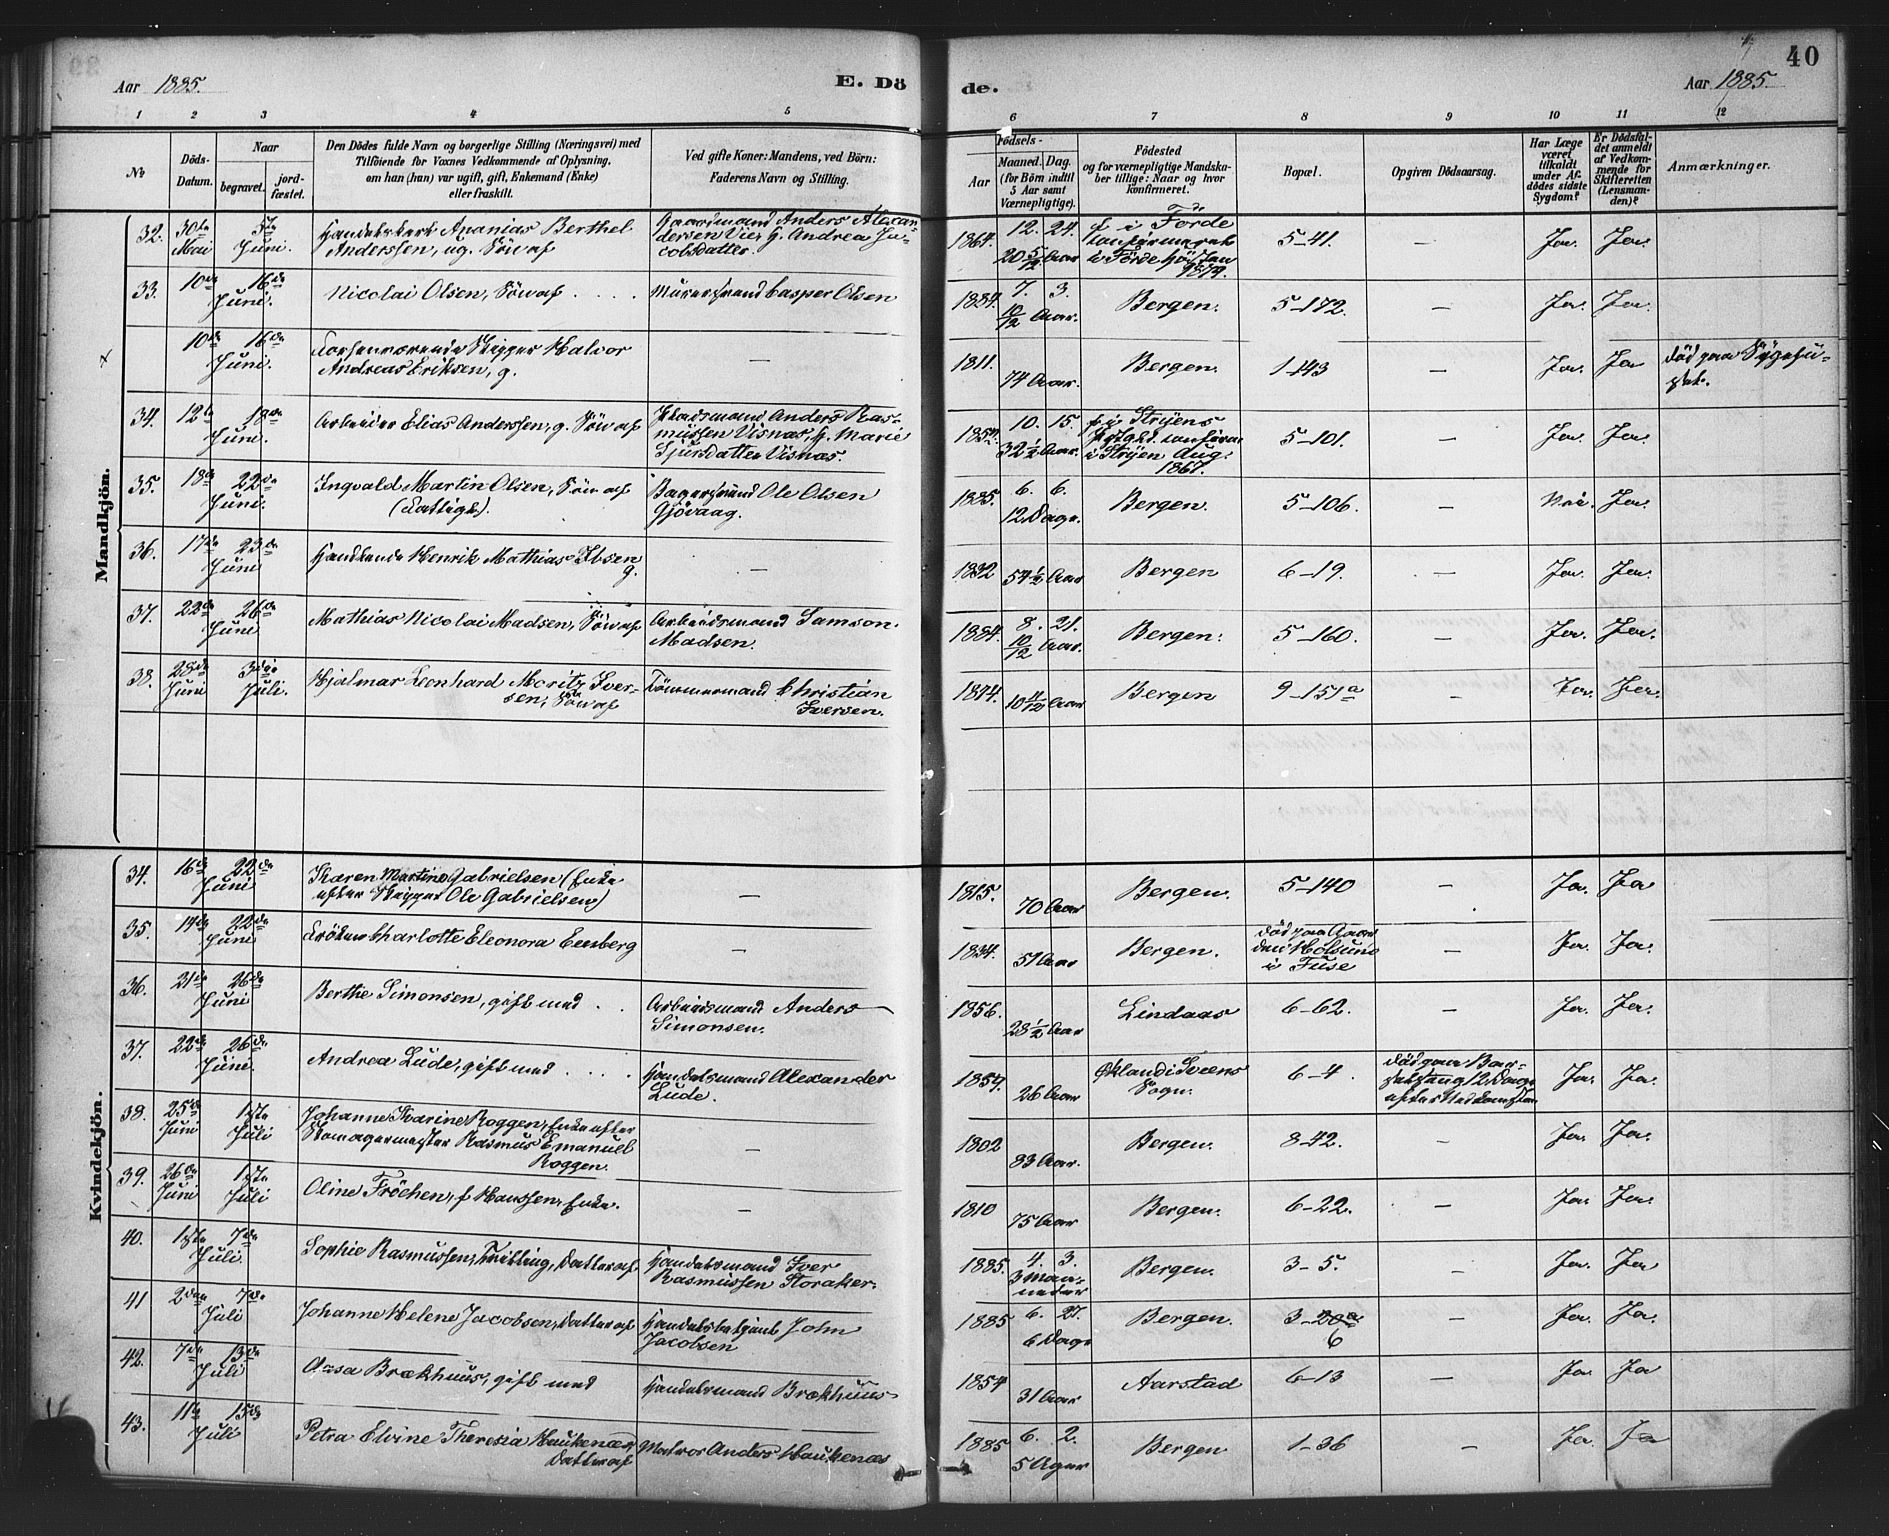 40
Aar 1885.
E. Dö
de.
Aar 1885.
1 2 3 4 5 6 7 8 9 10 11 12
No
Döds-
Datum.
Naar
begravet.
jord-
fæstet.
Den Dödes fulde Navn og borgerlige Stilling (Næringsvei) med
Tilföiende for Voxnes Vedkommende af Oplysning,
om han (hun) var ugift, gift, Enkemand (Enke)
eller fraskilt.
Ved gifte Koner: Mandens, ved Börn:
Faderens Navn og Stilling.
Födsels-
Aar
Maaned. Dag.
(for Börn indtil
5 Aar samt
Værnepligtige).
Födested
og for værnepligtige Mandska-
ber tillige: Naar og hvor
konfirmeret.
Bopæl.
Opgiven Dödsaarsag.
Har Læge
været
tilkaldt
under Af-
dödes sidste
Sygdom?
Er Dödsfal-
det anmeldt
af Vedkom-
mende for
Skifteretten
(Lensman-
den)?
Anmærkninger.
Mandkjön.
32. 30te Mai 5te Juni. Handelsbetj. Ananias Berthel
Anderssen, ug. Sön af
Gaardmand Anders Alexan-
dersen Vie, h. Andrea Ja-
cobsdatter.
1864. 12. 24.
20 5/12 Aar
f i Förde
konfirmeret
i Förde Hösten
1879.
5-41. Ja. Ja.
33. 10de Juni 16de Juni. Nicolai Olsen, Sön af Murersvend Casper Olsen
1884. 7. 3.
10/12 Aar.
Bergen. 5-172. - Ja. Ja.
10de Juni 16de Juni. Forhenværende Skipper Halvor
Andreas Eriksen, g. -
1811. 74 Aar. Bergen. 1-143 - Ja. Ja död paa Sygehu-
set.
34. 12te Juni 18de Juni. Arbeider Elias Anderssen, g. Sön af
Pladsmand Anders Ras-
mussen Visnæs, h. Marie
Sjursdatter Visnæs.
10. 15.
32 1/2 Aar
i Stryen Aug.
1867.
5-101. - Ja. Ja.
35. 18de Juni 22de Juni. Ingvald Martin Olsen, Sön af
(Fattigl.)
Bagersvend Ole Olsen
Gjövaag.
1885. 6. 6.
12 Dage.
Bergen. 5-106. - Nei. Ja.
36. 17de Juni 23de Juni Handlende Henrik Mathias Ibsen
g. -
1832 54 1/2 Aar Bergen 6-19. - Ja. Ja.
37. 22de Juni 26de Juni Mathias Nicolai Madsen, Sön af
Arbeidsmand Samson
Madsen.
1884. 8. 21.
10/12 Aar.
Bergen. 5-160. - Ja. Ja.
38. 28de Juni 3die Juli. Hjalmar Leonhard Moritz Iver-
sen, Sön af
Tömmermand Christian
Iversen.
1874. 10 4/12 Aar Bergen 9-151a - Ja. Ja.
Kvindekjön.
34. 16de Juni 22de Juni Karen Martine Gabrielsen (Enke
efter Skipper Ole Gabrielsen) -
1815. 70 Aar Bergen. 5-140 - Ja. Ja
35. 14de Juni 22de Juni Fröken Charlotte Eleonora Eenberg -
1834. 51 Aar Bergen. död paa Gaar-
den Holsund
i Fuse - Ja. Ja.
36. 21de Juni 26de Juni Berthe Simonsen, gift med Arbeidsmand Anders
Simonsen.
1856. 28 1/2 Aar Lindaas 6-62. - Ja. Ja.
37. 22de Juni 26de Juni. Andrea Lude, gift med Handelsmand Alexander
Lude.
1859. 26 Aar Ökland i Sveens
Sogn. 6-4. död paa Bar-
selseng 12 Dage
efter Nedkomsten Ja. Ja.
38. 25de Juni 1ste Juli Johanne Karine Roggen, Enke efter
Skomagermester Rasmus Emanuel
Roggen. -
1802 83 Aar. Bergen. 8-42. - Ja. Ja.
39. 26de Juni 1ste Juli Oline Fröchen, f Hanssen, Enke. -
1810 75 Aar Bergen. 6-22. - Ja. Ja.
40. 1ste 7de Juli. Sophie Rasmussen, Tvilling, Datter af Handelsmand Iver
Rasmussen Storaker.
1885. 4. 3.
3 Maa-
neder
Bergen. 3-5. - Ja. Ja
41 2den 7de Juli Johanne Helene Jacobsen, Datter af Handelsbetjent John
Jacobsen
1885 6. 27.
6 Dage
Bergen. 3-20a
6 - Ja. Ja.
42. 7de 13de Juli Aasa Brækhuus, gift med Handelsmand Brækhuus
1854 31 Aar Aarstad 6-13 - Ja. Ja
43. 11te 15de Juli Petra Elvine Theresia Haukenæs,
Datter af
Matros Anders Haukenæs
1885 6. 2.
5 Uger
Bergen 1-36 - Ja. Ja